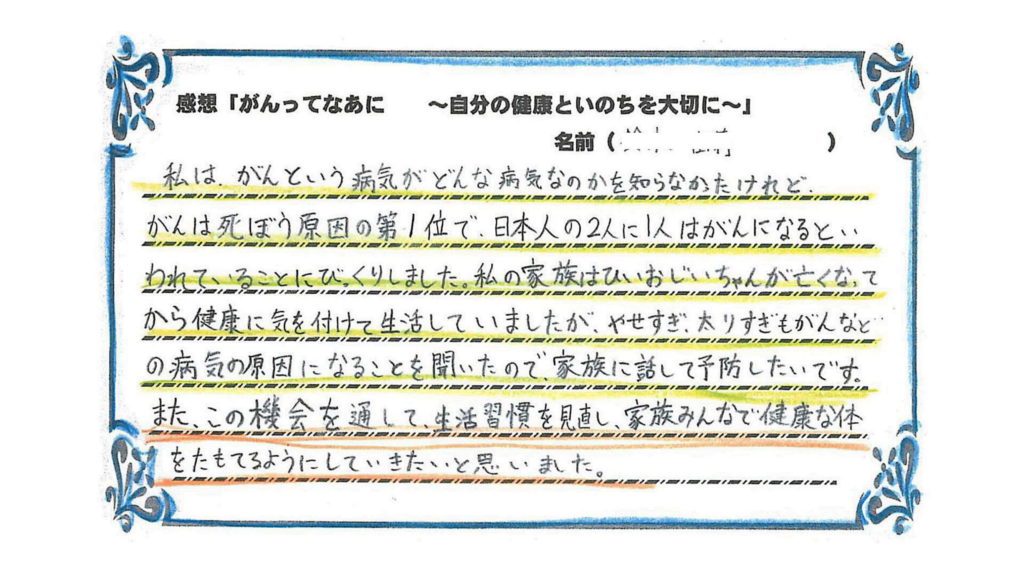 感想「がんってなあに　　～自分の健康といのちを大切に～」
名前（　　　　　　　）
私は、がんという病気がどんな病気なのかを知らなかったけれど、
がんは死ぼう原因の第1位で、日本人の2人に1人はがんになるとい
われていることにびっくりしました。私の家族はひいおじいちゃんが亡くなって
から健康に気を付けて生活していましたが、やせすぎ、太りすぎもがんなど
の病気の原因になることを聞いたので、家族に話して予防したいです。
また、この機会を通して、生活習慣を見直し、家族みんなで健康な体
をたもてるようにしていきたいと思いました。